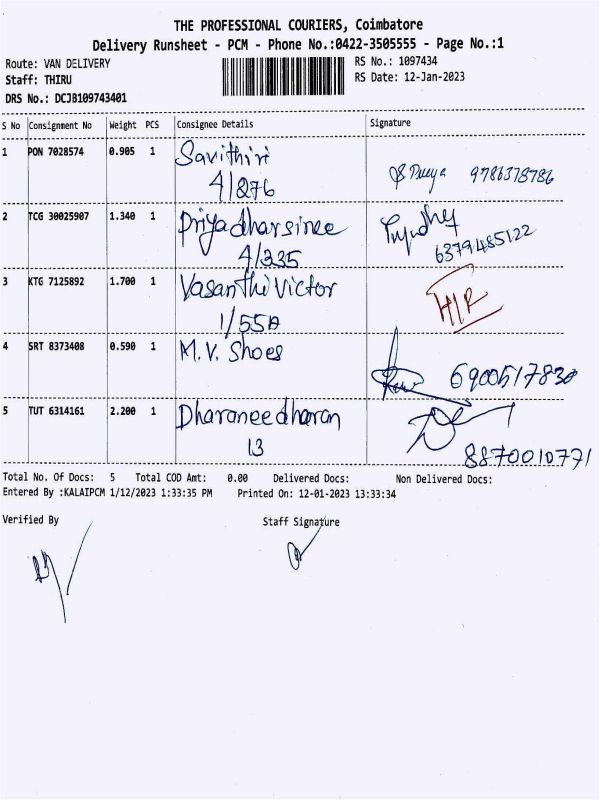 THE PROFESSIONAL COURIERS, Coimbatore
Delivery Runsheet - PCM - Phone No.:0422-3505555 - Page No.:1
Route: VAN DELIVERY RS No.: 1097434
Staff: THIRU RS Date: 12-Jan-2023
DRS No.: DCJB109743401
S No Consignment No Weight PCS Consignee Details Signature
1 PON 7028574 0.905 1 Savithiri
4/276 9786378786
2 TCG 30025907 1.340 1 Priyadharsinee
4/335 6379485122
3 KTG 7125892 1.700 1 Vasanthi Victor
1/55A H/R
4 SRT 8373408 0.590 1 M.V. Shoes
6900517830
5 TUT 6314161 2.200 1 Dharaneedharan
13 8870010771
Total No. Of Docs: 5 Total COD Amt: 0.00 Delivered Docs: Non Delivered Docs:
Entered By :KALAIPCM 1/12/2023 1:33:35 PM Printed On: 12-01-2023 13:33:34
Verified By Staff Signature